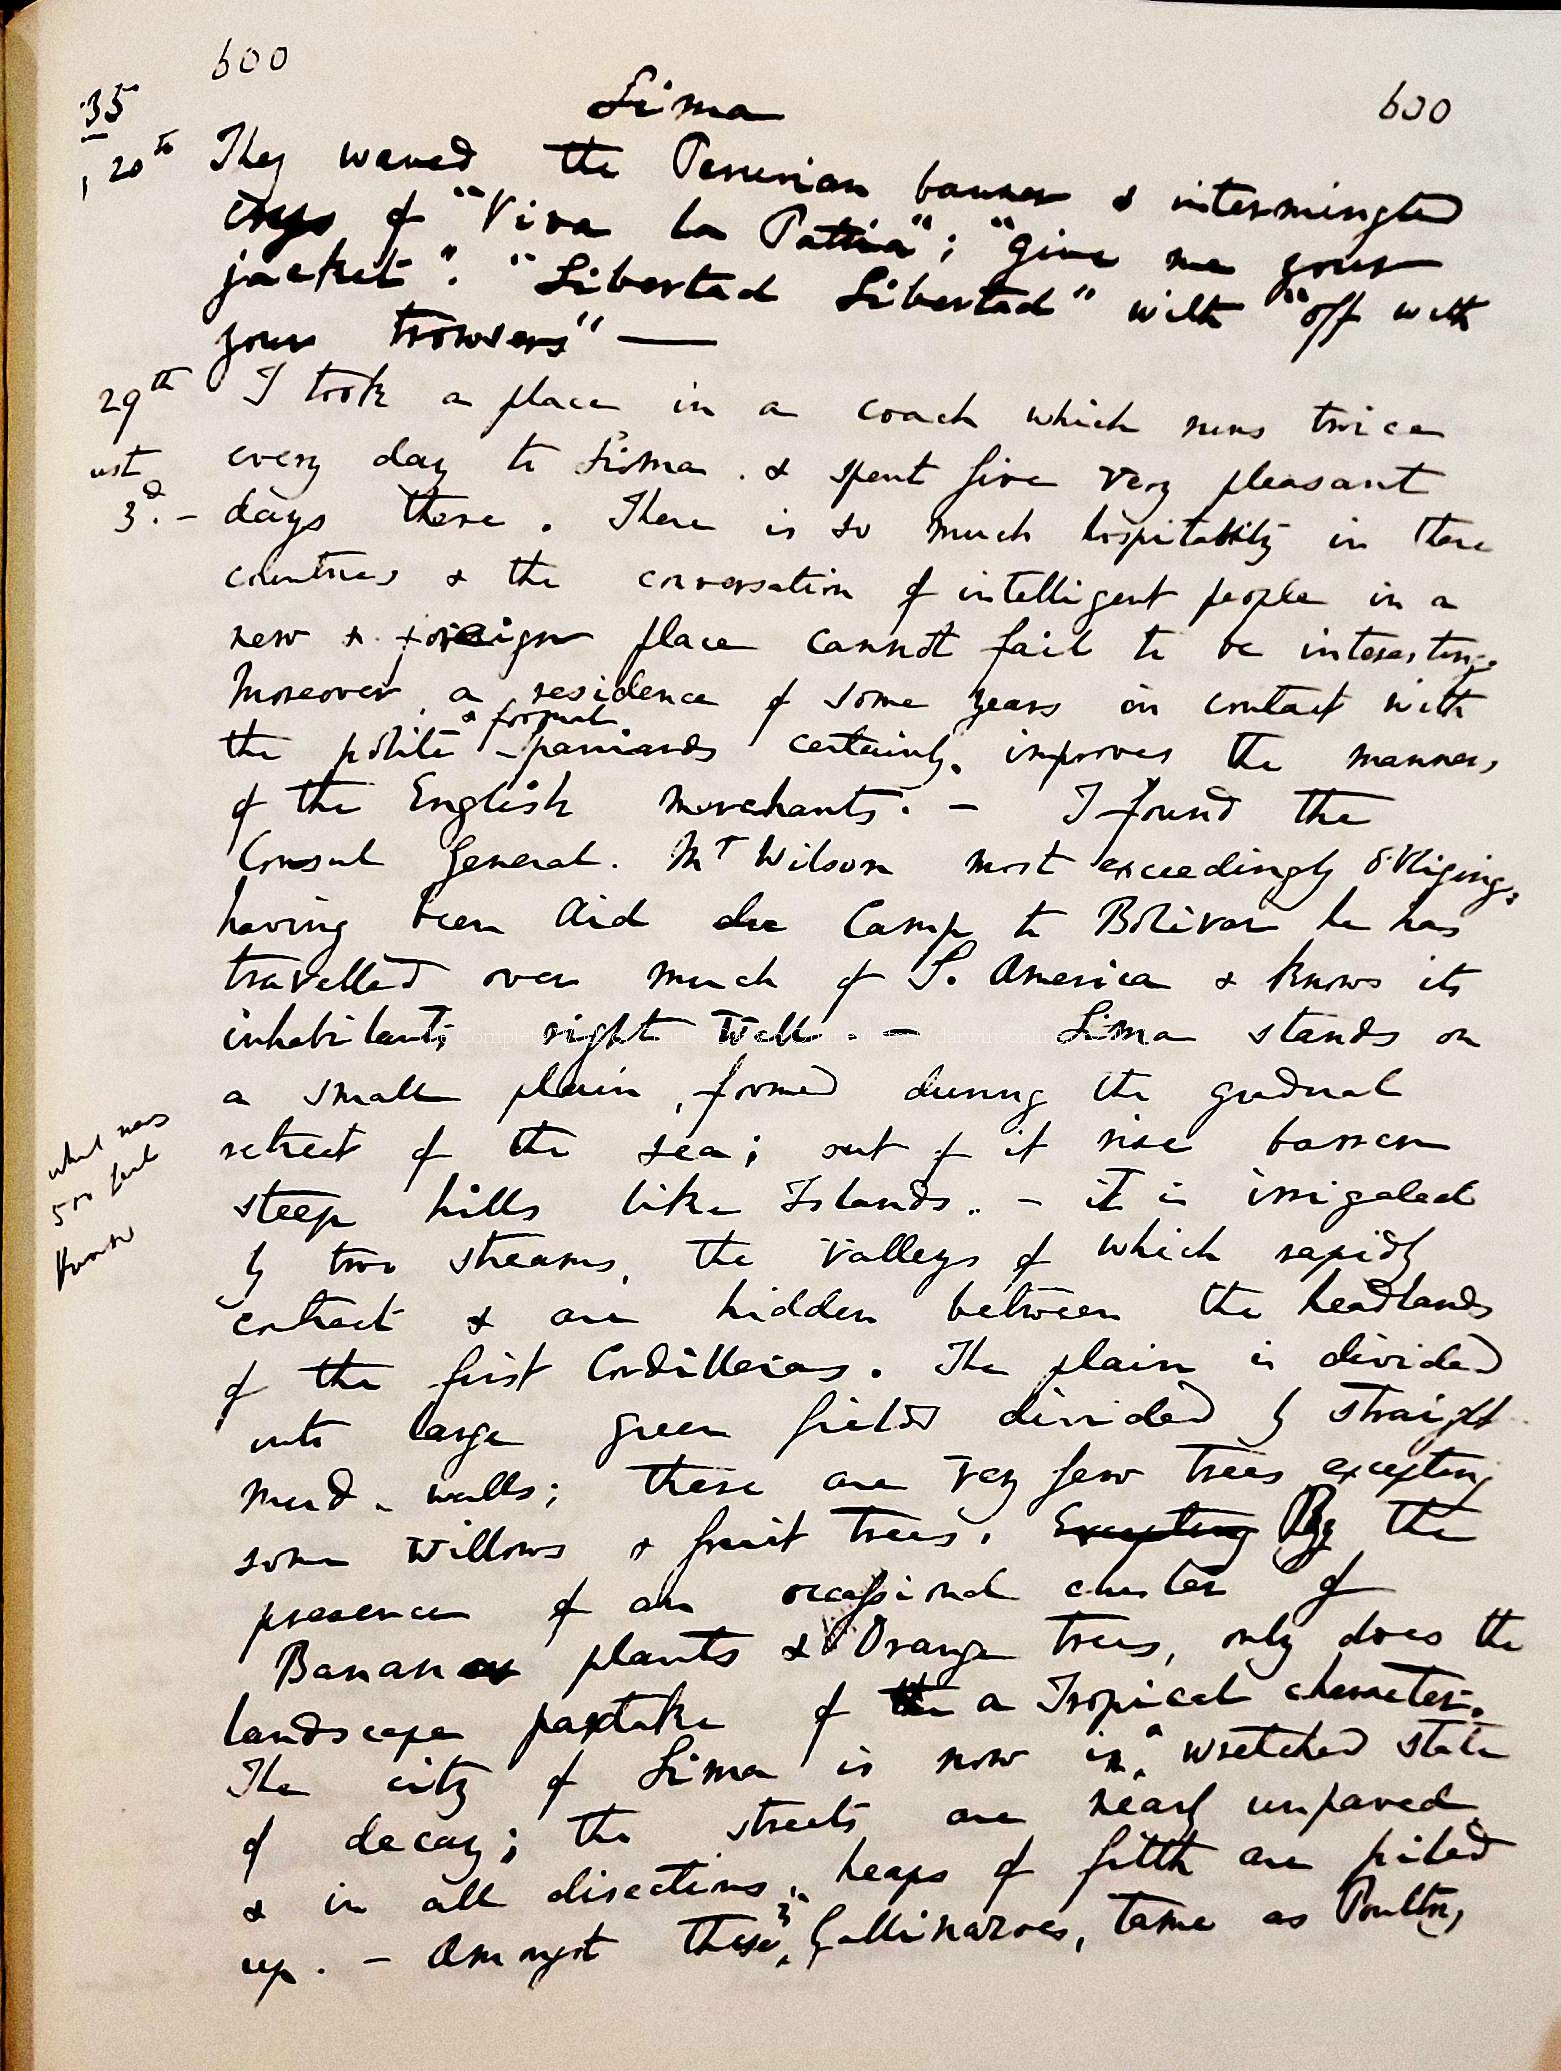 600
Lima
600
35
20th They waved the Peruvian banner & intermingled
crys of "Viva la Patria"; "give me your
jacket". "Libertad Libertad" with "off with
your trowsers" —
29th I took a place in a coach which runs twice
ust every day to Lima. & spent five very pleasant
3d. – days there. There is so much hospitability in these
countries & the conversation of intelligent people in a
new & foreign place cannot fail to be interesting.
Moreover, a residence of some years in contact with
& formal
the polite Spaniards certainly improves the manners
of the English merchants. – I found the
Consul General. Mr Wilson most exceedingly obliging.
having been Aid du Camp to Bolivar he has
travelled over much of S. America & knows its
inhabitants right well – Lima stands on
a small plain, formed during the gradual
retreat of the sea; out of it rise barren
steep hills like Islands. – it is irrigated
by two streams, the valleys of which rapidly
contract & are hidden between the headlands
of the first Cordilleras. The plain is divided
into large green fields divided by straight
mud-walls; there are very few trees excepting
some willows & fruit trees. Excepting By the
presence of an occasional cluster of
Banana plants & Orange trees, only does the
landscape partake of the a Tropical character.
The city of Lima is now in a wretched state
of decay; the streets are nearly unpaved
& in all directions, heaps of filth are piled
up. – Amongst these, Gallinazoes, tame as Poultry,